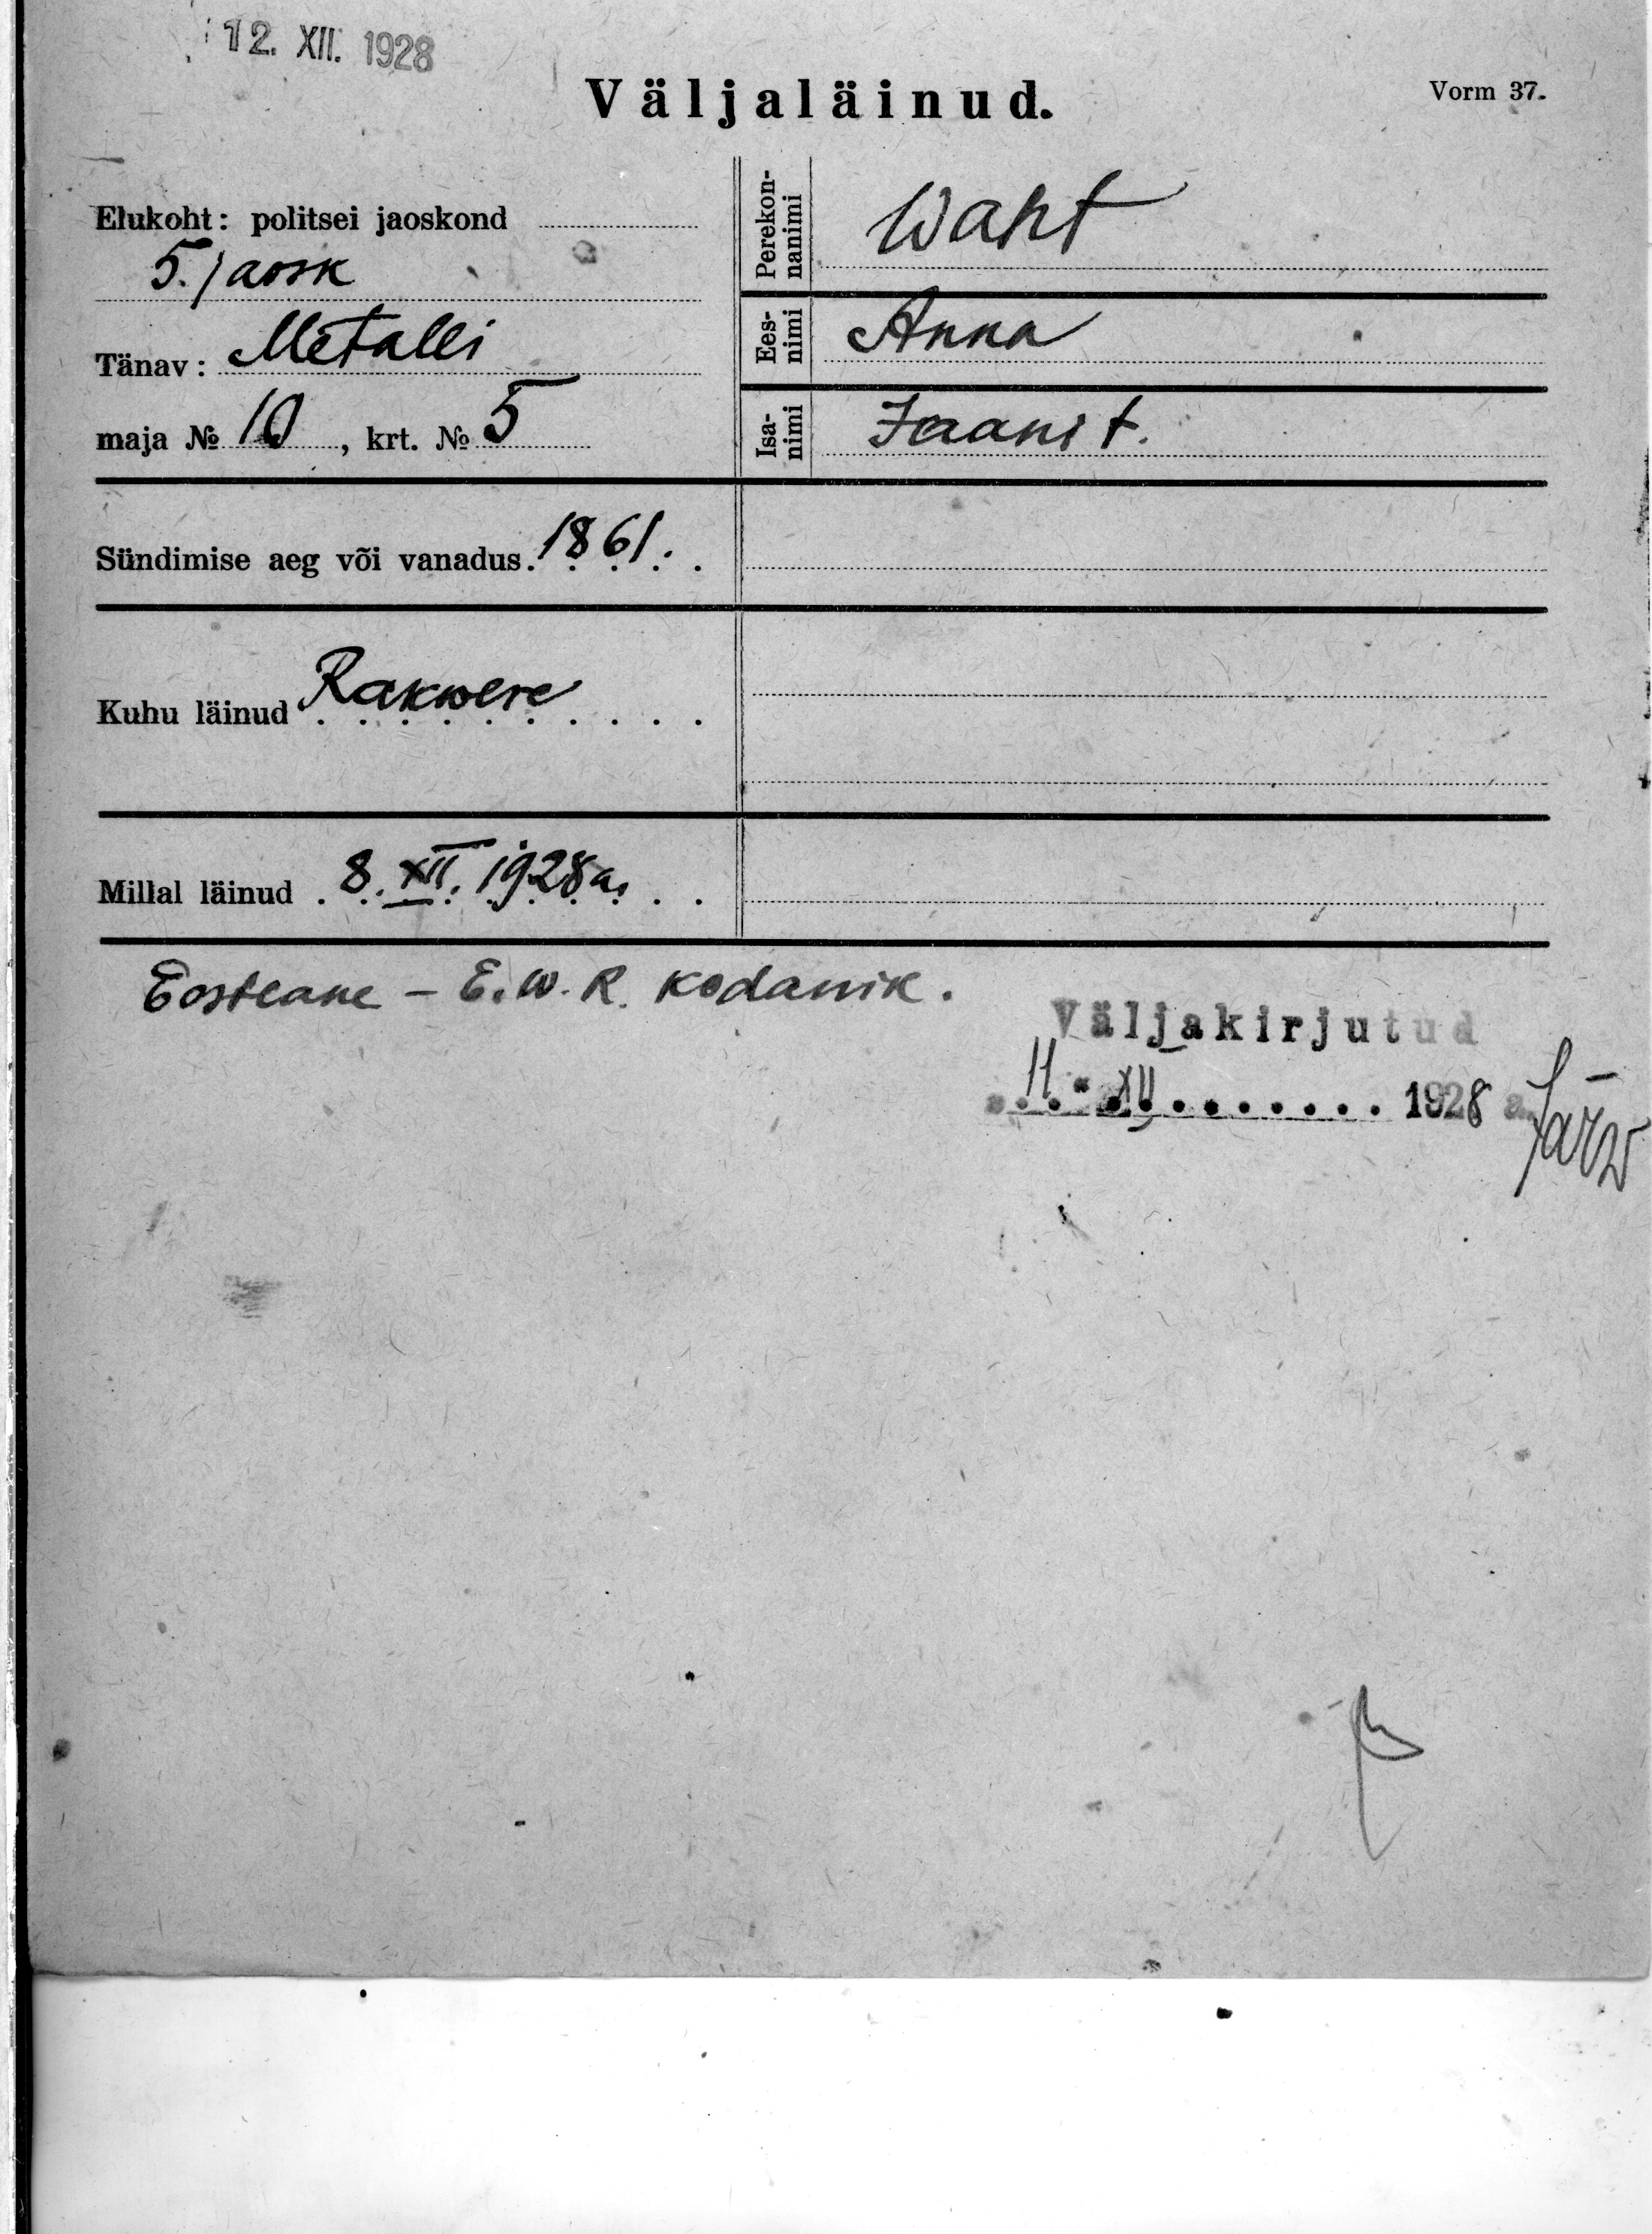 12. XII. 1928
Väljaläinud.
Vorm 37.
Elukoht: politsei jaoskond
5. jaosk
Tänav: Metalli
maja № 10, krt. № 5
Perekonnanimi Waht
Eesnimi Anna
Isanimi Jaani t.
Sündimise aeg või vanadus. 1861.
Kuhu läinud Rakwere
Millal läinud 8. XII. 1928 a.
Eestlane – E. W. R. kodanik.
Väljakirjutud
11. XII 1928 a.
Järw